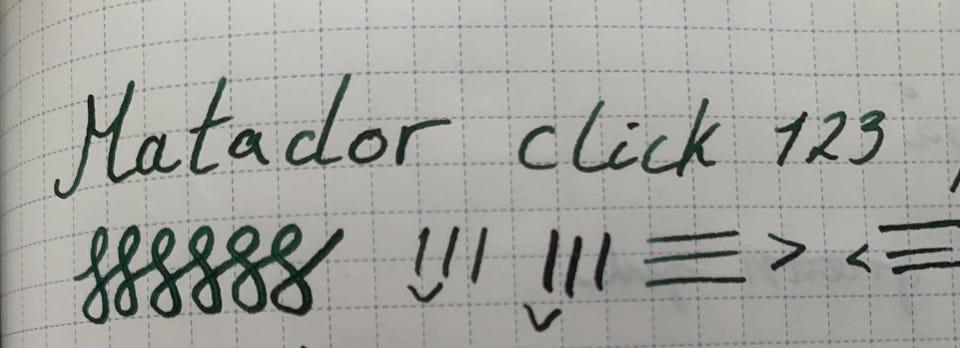 Matador click 123
> <